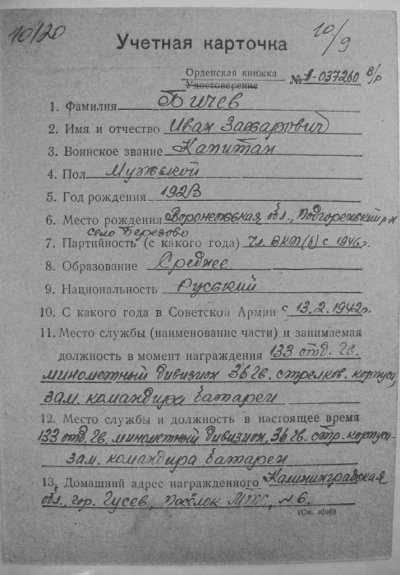 10/20
10/9
Учетная карточка
Орденская книжка
Удостоверение № А-037260 в/р
1. Фамилия Бичев
2. Имя и отчество Иван Захарович
3. Воинское звание Капитан
4. Пол Мужской
5. Год рождения 1923
6. Место рождения Воронежская обл., Подгоренский р-н
село Березово
7. Партийность (с какого года) Чл. ВКП(б) с 1946г.
8. Образование Среднее
9. Национальность Русский
10. С какого года в Советской Армии с 13.2.1942г.
11. Место службы (наименование части) и занимаемая
должность в момент награждения 133 отд. гв.
минометный дивизион 36 гв. стрелков. корпуса,
зам. командира батареи
12. Место службы и должность в настоящее время
133 отд. гв. минометный дивизион, 36 гв. стр. корпуса-
зам. командира батареи
13. Домашний адрес награжденного Калининградская
обл., гор. Гусев, посёлок МТС, №6.
(См. н/об)